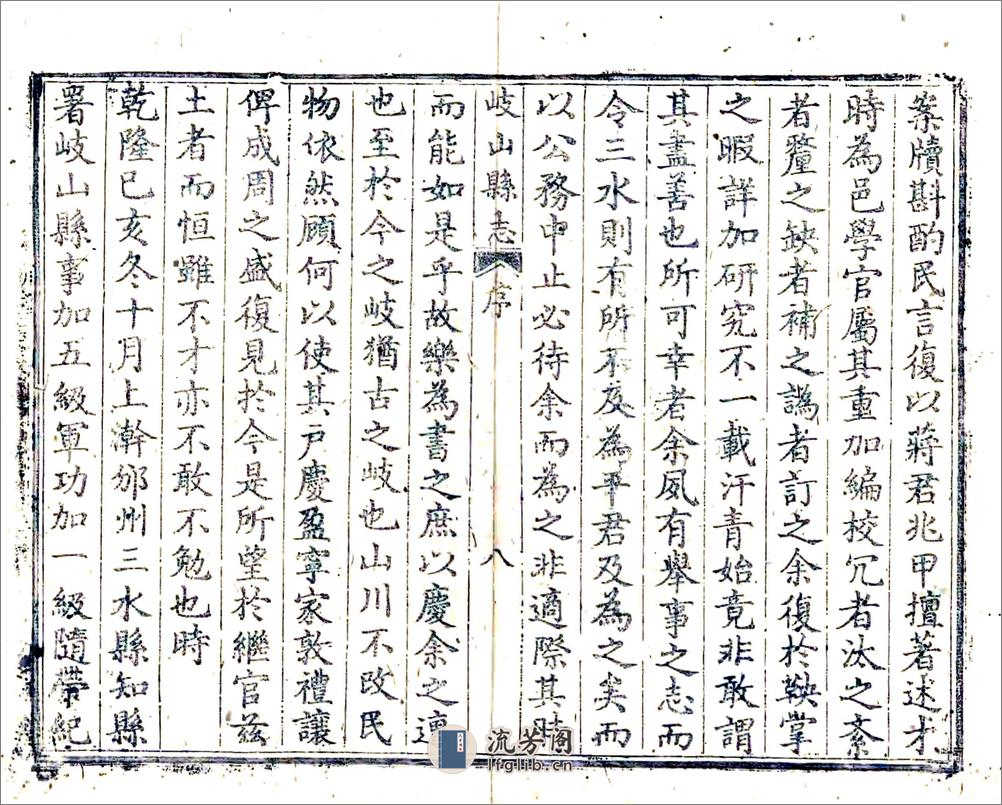 案牘斟酌民言復以蔣君兆甲擅著述才
時為邑學官屬其重加編校冗者汰之紊
者釐之缺者補之譌者訂之余復於鞅掌
之暇詳加研究不一載汗青始竟非敢謂
其盡善也所可幸者余夙有舉事之志而
令三水則有所不及為平君及為之矣而
以公務中止必待余而為之非適際其時
岐山縣志 序 八
而能如是乎故樂為書之庶以慶余之遭
也至於今之岐猶古之岐也山川不改民
物依然顧何以使其戶慶盈寧家敦禮讓
俾成周之盛復見於今是所望於繼官茲
土者而恒雖不才亦不敢不勉也時
乾隆己亥冬十月上澣邠州三水縣知縣
署岐山縣事加五級軍功加一級隨帶紀
流芳閣
lfglib.cn